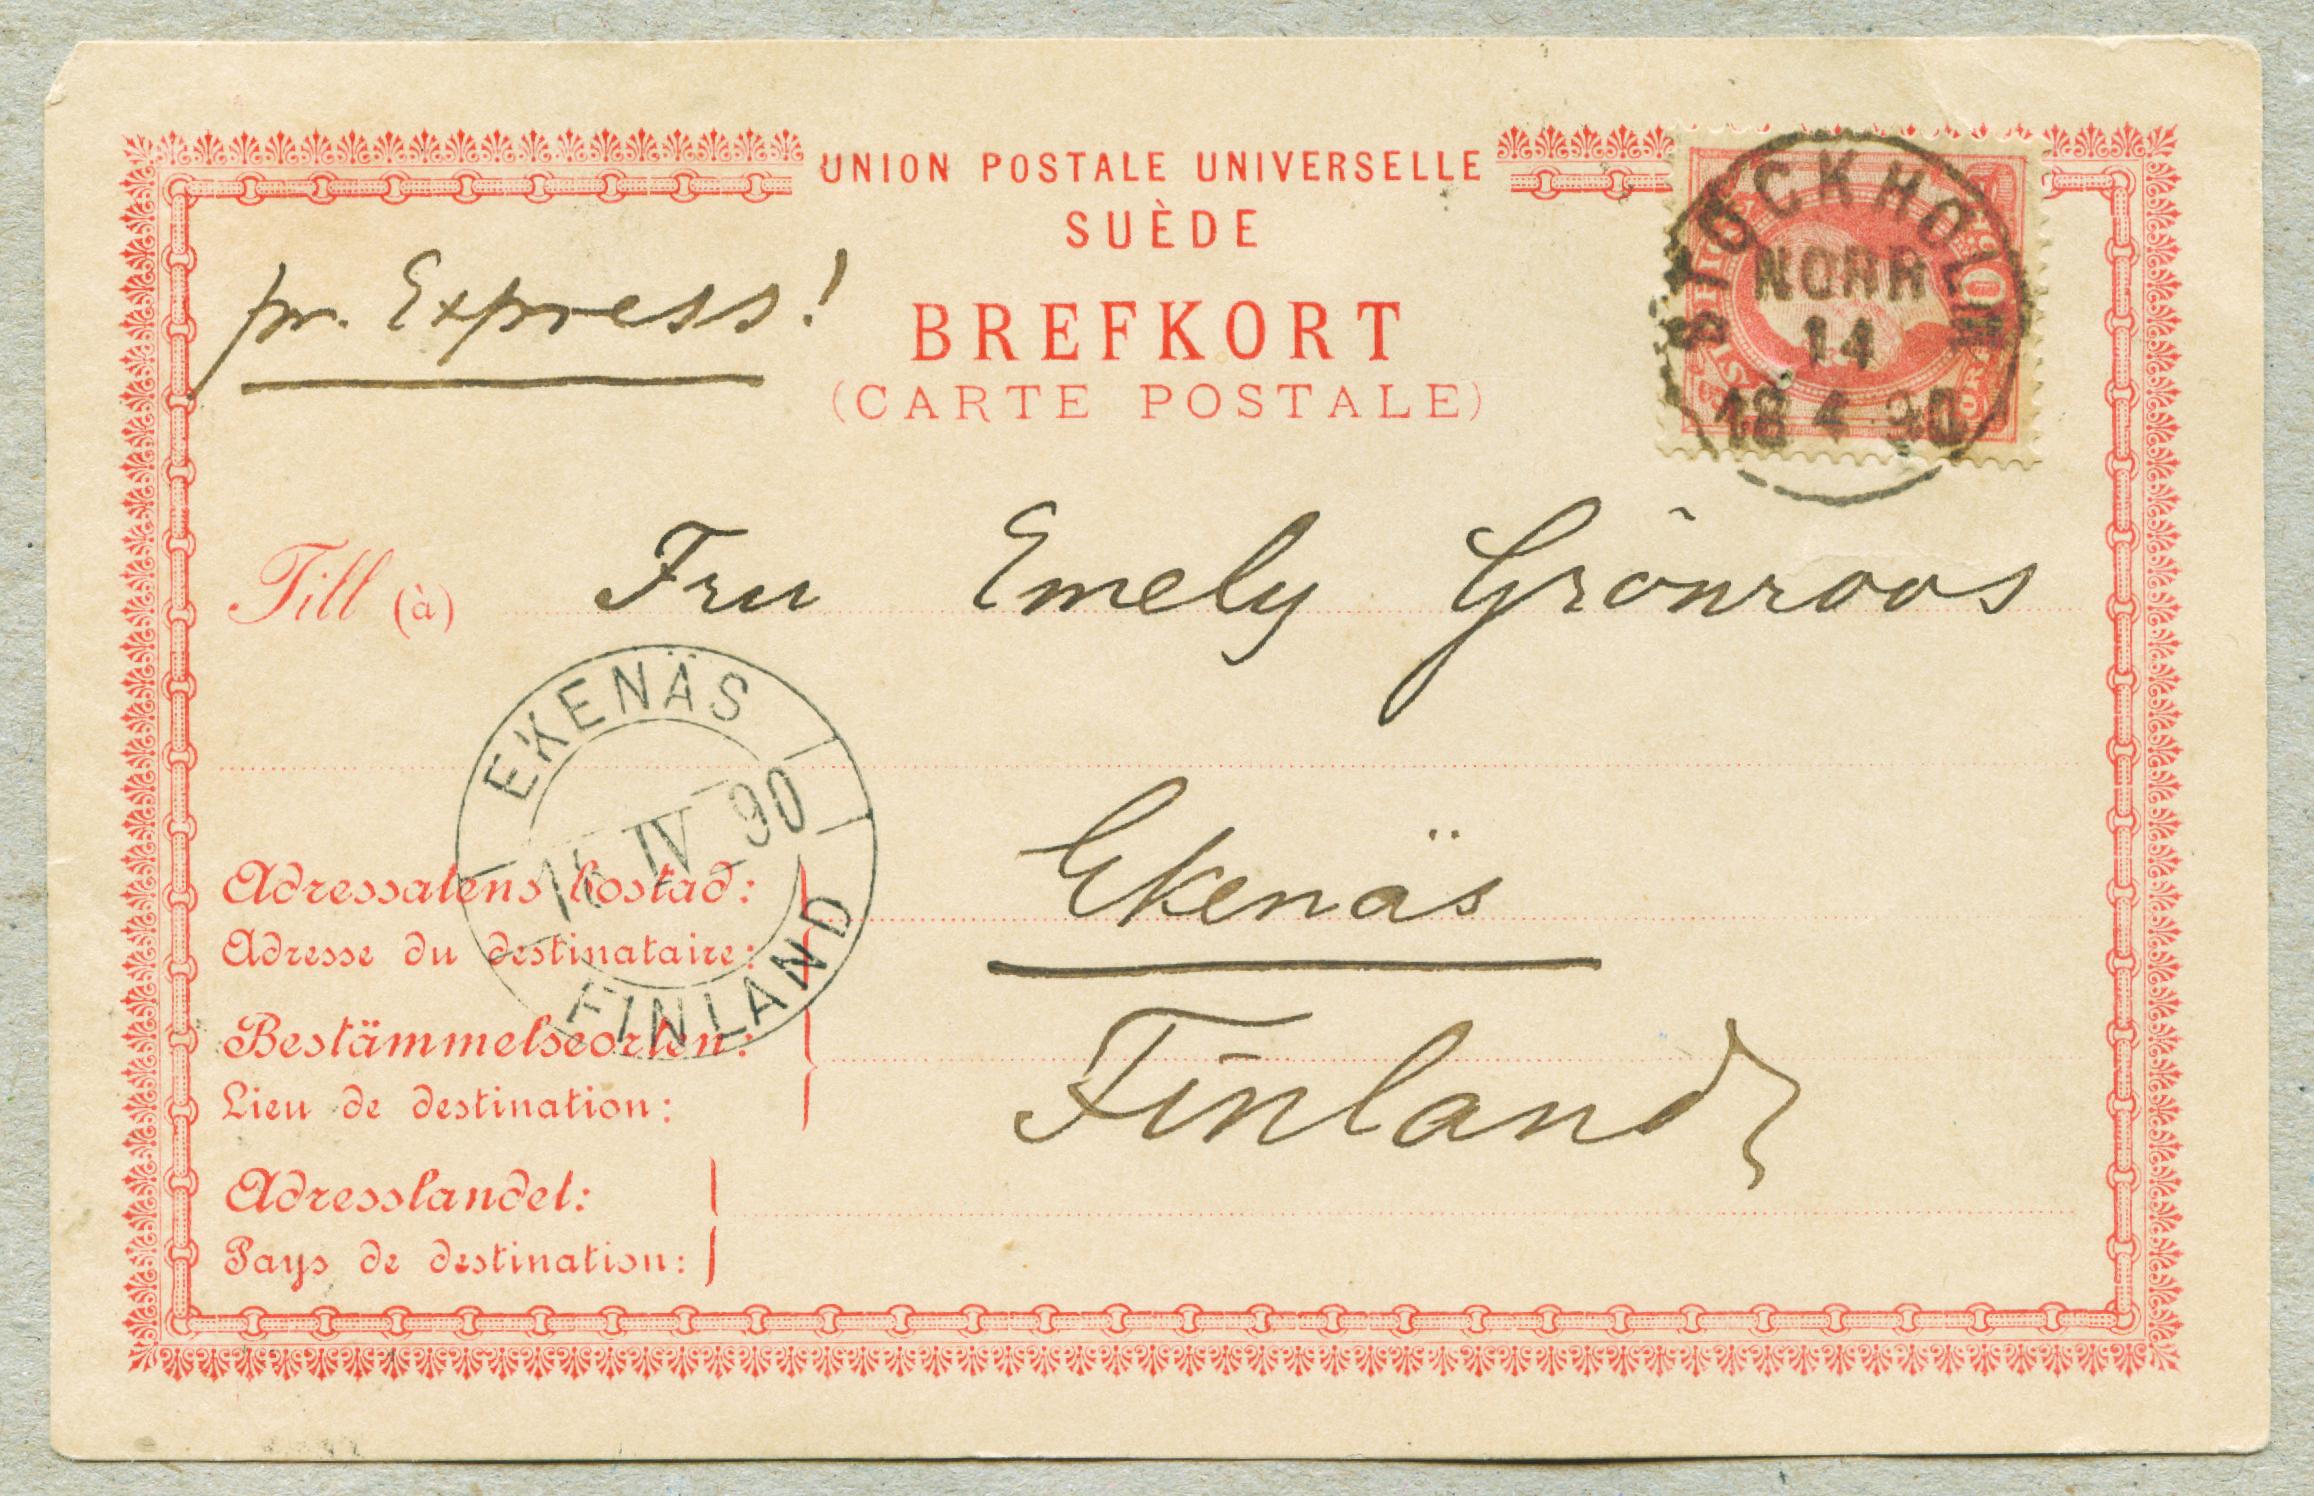 UNION POSTALE UNIVERSELLE
SUÈDE
BREFKORT
(CARTE POSTALE)
pr. Express!
STOCKHOLM
NORR
14
18 4 90
Till (à) Fru Emely Grönroos
EKENÄS
IV 90
FINLAND
Adressatens bostad:
Adresse du destinataire:
Ekenäs
Bestämmelseorten:
Lieu de destination:
Finland
Adresslandet:
Pays de destination: